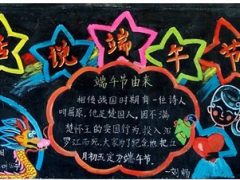 话说端午节
端午节由来
相传战国时期有一位诗人
叫屈原,他是楚国人,因不满
楚怀王的卖国行为投入汨
罗江而死,大家为了纪念他把五
月初五定为端午节。